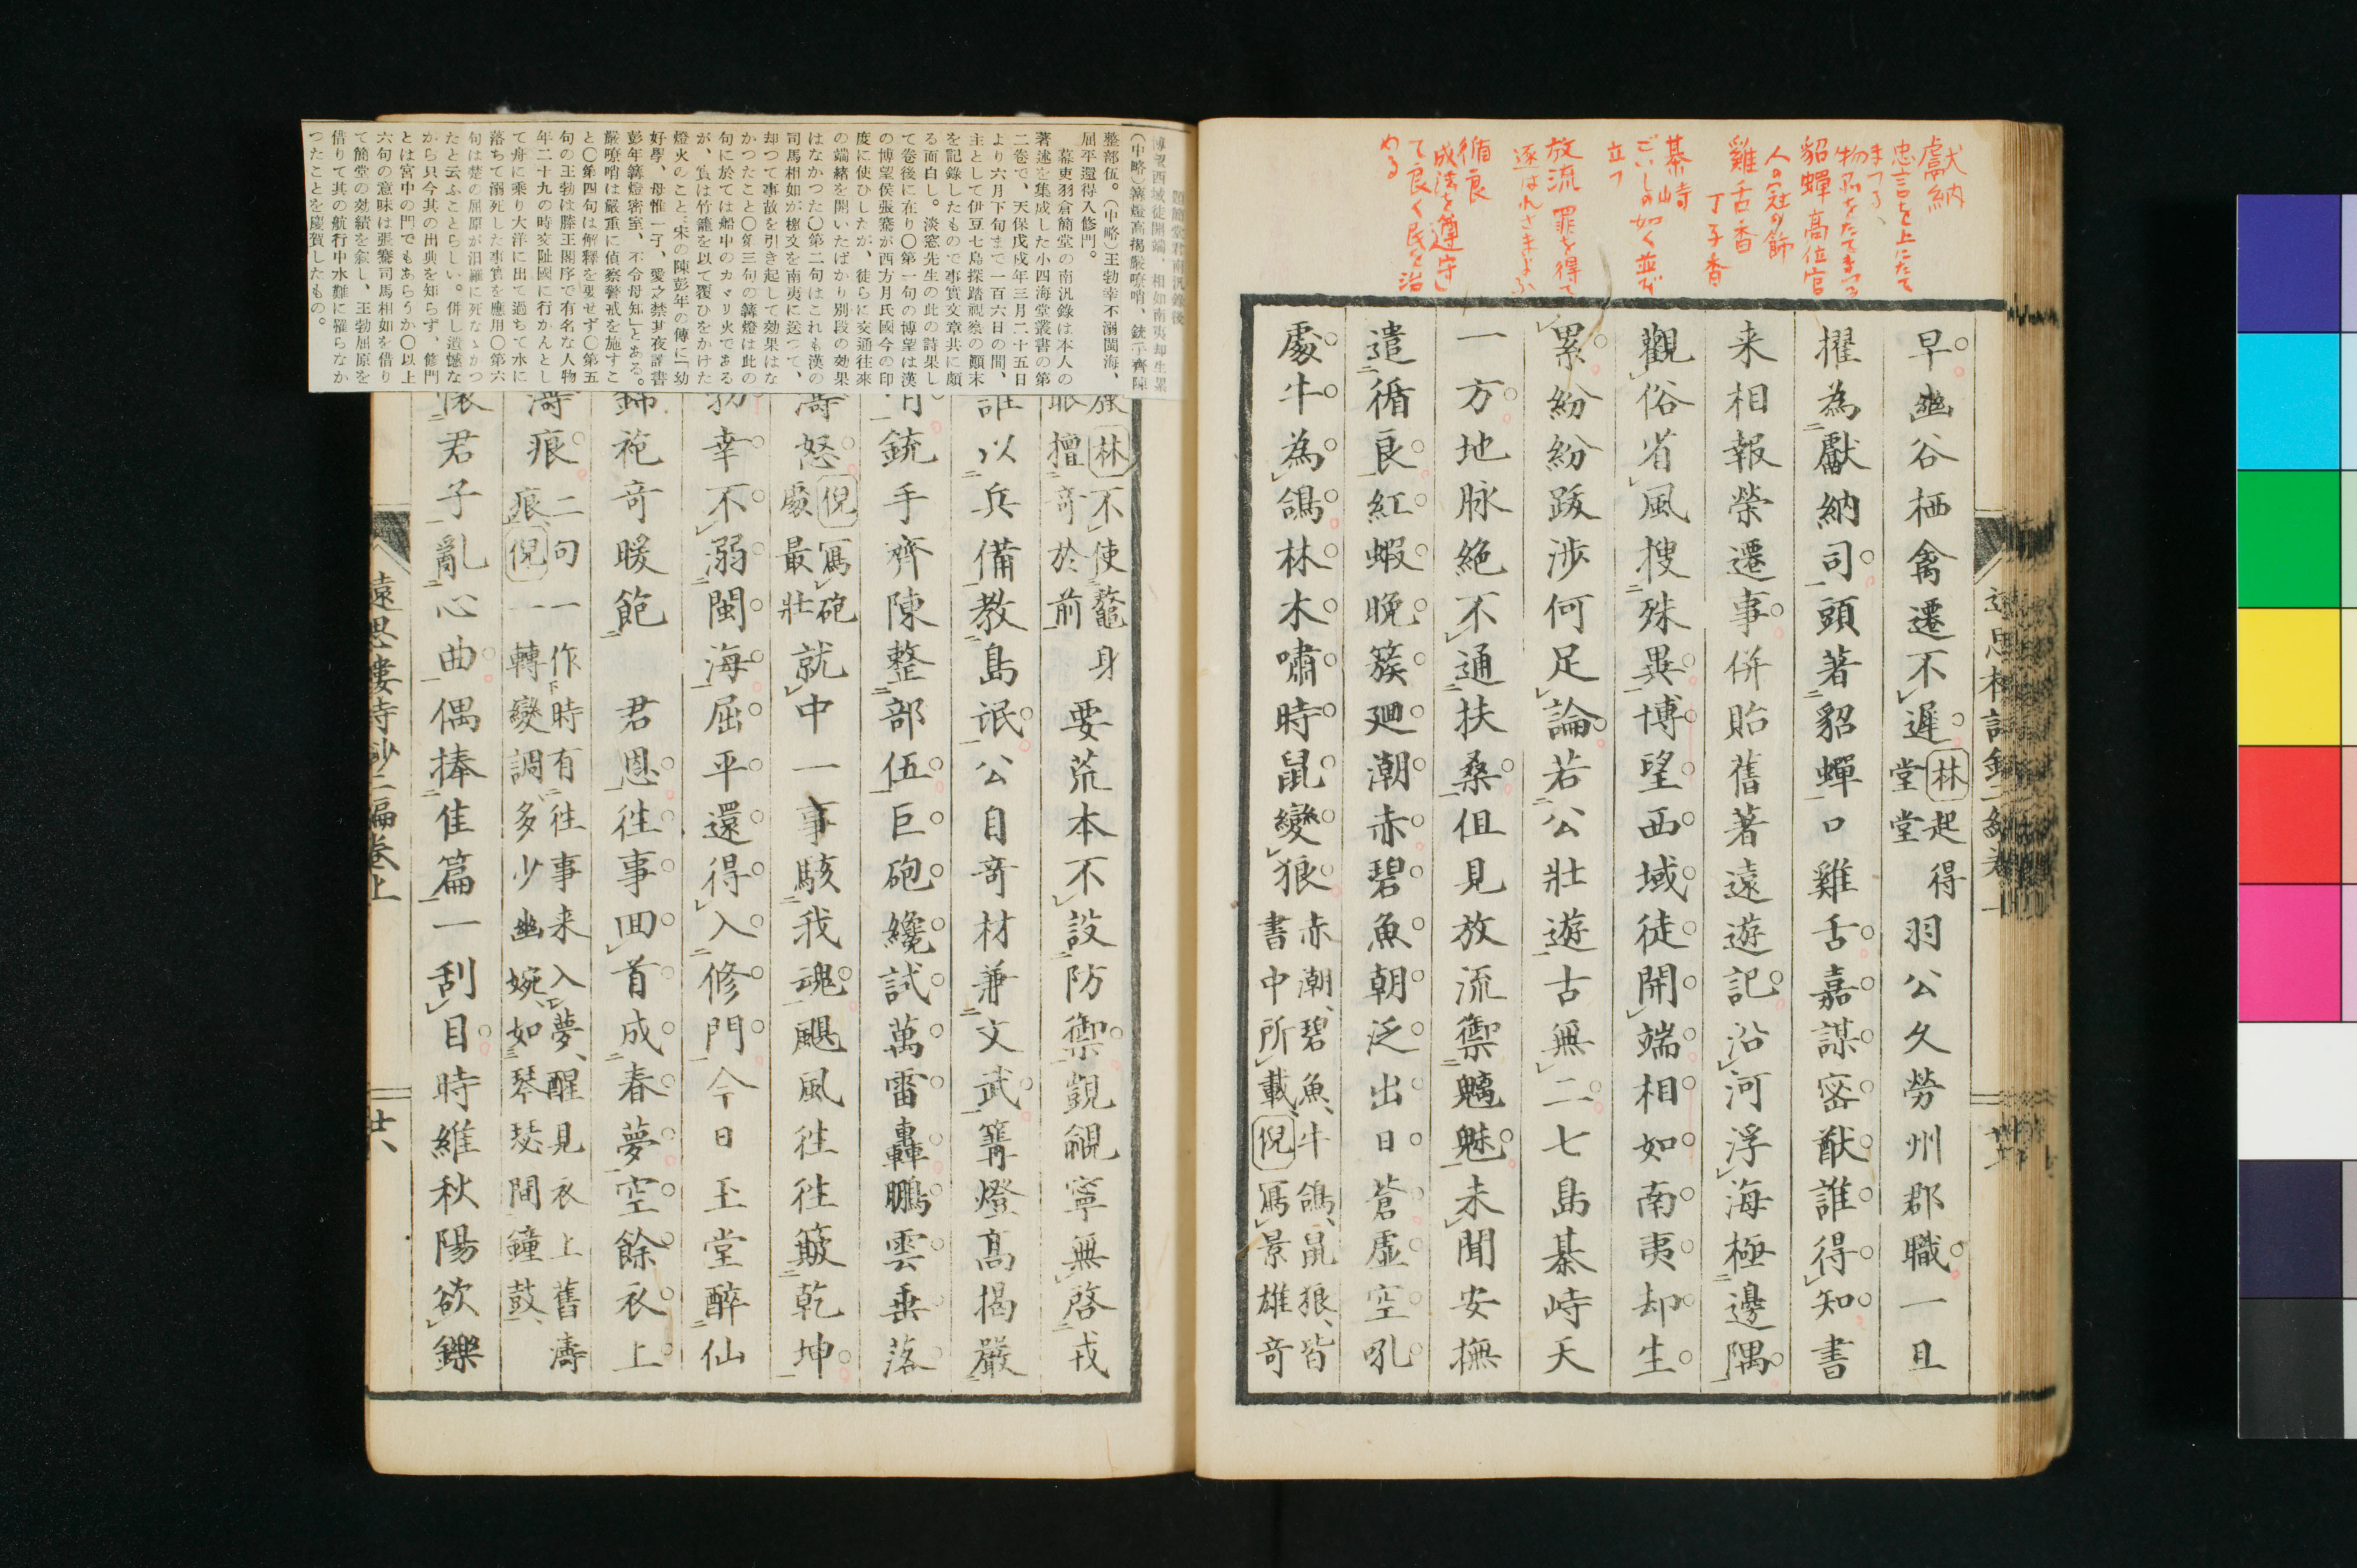 獻納
忠言を上にたて
まつる、
物品をたてまつる
貂蟬 高位官
人の冠の飾
雞舌香
丁子香
棊峙
ごいしの如く並び
立つ
放流 罪を得て
逐はれさまよふ
循良
成法を遵守し
て良く民を治
める
早幽谷栖禽遷不遲林起得堂堂羽公久勞州郡職一旦
擢為獻納司頭著貂蟬口雞舌嘉謀密猷誰得知書
来相報榮遷事併貽舊著遠遊記沿河浮海極邊隅
觀俗省風搜殊異博望西域徒開端相如南夷却生
累紛紛跋涉何足論若公壯遊古無二七島棊峙天
一方地脉絶不通扶桑但見放流禦魑魅未聞安撫
遣循良紅蝦晚簇廻潮赤碧魚朝泛出日蒼虛空吼
處牛為鴿林木嘯時鼠變狼赤潮、碧魚、牛鴿、鼠狼、皆書中所載、倪寫景雄奇
題簡堂君南汎錄後
博望西域徒開端、相如南夷却生累
(中略)篝燈高揭嚴嘹哨、銃手齊陳
整部伍。(中略)王勃幸不溺閩海、
屈平還得入修門。
幕吏羽倉簡堂の南汎錄は本人の
著述を集成した小四海堂叢書の第
二卷で、天保戊戌年三月二十五日
より六月下旬まで一百六日の間、
主として伊豆七島探踏視察の顚末
を記錄したもので事實文章共に頗
る面白し。淡窓先生の此の詩果し
て卷後に在り〇第一句の博望は漢
の博望侯張騫が西方月氏國今の印
度に使ひしたが、徒らに交通往來
の端緖を開いたばかり別段の効果
はなかつた〇第二句はこれも漢の
司馬相如が檄文を南夷に送つて、
却つて事故を引き起して効果はな
かつたこと〇第三句の篝燈は此の
句に於ては船中のカヾリ火である
が、實は竹籠を以て覆ひをかけた
燈火のこと、宋の陳彭年の傳に「幼
好學、母惟一子、愛之禁其夜讀書
彭年篝燈密室、不令母知」とある。
嚴嘹哨は嚴重に偵察警戒を施すこ
と〇第四句は解釋を要せず〇第五
句の王勃は滕王閣序で有名な人物
年二十九の時交趾國に行かんとし
て舟に乘り大洋に出て過ちて水に
落ちて溺死した事實を應用〇第六
句は楚の屈原が汨羅に死なゝかつ
たと云ふことらしい。併し遺憾な
から只今其の出典を知らず、修門
とは宮中の門でもあらうか〇以上
六句の意味は張騫司馬相如を借り
て簡堂の効績を叙し、王勃屈原を
借りて其の航行中水難に罹らなか
つたことを慶賀したもの。
林不使鼇身擅奇於前要荒本不設防禦覬覦寧無啓戎
誰以兵備教島氓公自奇材兼文武篝燈高揭嚴
銃手齊陳整部伍巨砲纔試萬雷轟鵬雲垂落
濤怒倪寫砲處最壯就中一事駭我魂颶風往往簸乾坤
勃幸不溺閩海屈平還得入修門今日玉堂醉仙
錦袍奇暖飽君恩往事回首成春夢空餘衣上
濤痕二句一作時有往事来入夢、醒見衣上舊濤痕、倪一轉變調、多少幽婉、如琴瑟間鐘鼓、
懷君子亂心曲偶捧佳篇一刮目時維秋陽欲鑠
遠思樓詩鈔二編卷上
廿八